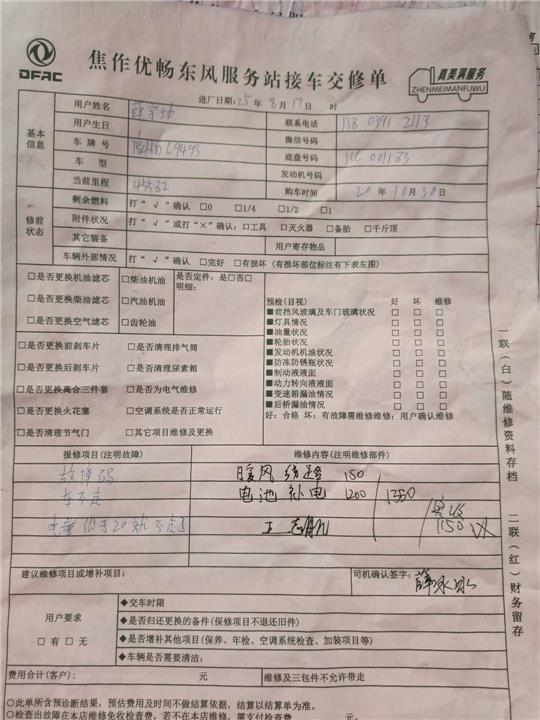 DFAC
焦作优畅东风服务站接车交修单
真美满服务
ZHENMEIMANFUWU
进厂日期:25年8月17日 时
基本信息
用户姓名
联系电话 138 0391 2113
用户生日
微信号码
车牌号
底盘号码
车型
发动机号码
当前里程 45582
购车时间 20年10月30日
修前状态
剩余燃料 打“√”确认 □0 □1/4 □1/2 □1
附件状况 打“√”或打“×”确认:□工具 □灭火器 □备胎 □千斤顶
其它装备 用户寄存物品
车辆外部情况 打“√”确认 □完好 □有损坏(有损坏部位标注有下表左图)
□是否更换机油滤芯 □柴油机油 是否定件:是□否□
明细:
□是否更换柴油滤芯 □汽油机油
□是否更换空气滤芯 □齿轮油
□是否更换前刹车片 □是否清理排气筒
□是否更换后刹车片 □是否清理尿素箱
□是否更换离合三件套 □是否为电气维修
□是否更换火花塞 □空调系统是否正常运行
□是否清理节气门 □其它项目维修及更换
预检(目视) 好 坏 维修
■前挡风玻璃及车门玻璃状况 □ □ □
■灯具情况 □ □ □
■油量状况 □ □ □
■轮胎状况 □ □ □
■发动机机油状况 □ □ □
■防冻防锈瓶状况 □ □ □
■制动液液面 □ □ □
■动力转向液液面 □ □ □
■变速箱漏油情况 □ □ □
■后桥漏油情况 □ □ □
好:合格 坏:有故障需维修维修:用户确认维修
报修项目(注明故障) 维修内容(注明维修部件)
故障码 暖风线路 150
车不走 电池补电 1200 1350
电量低于20就不走了
实收
1150
建议维修项目或增补项目:
司机确认签字:
用户要求
□有□无
◆交车时限
◆是否归还更换的备件(保修项目不退还旧件)
◆是否增补其他项目(保养、年检、空调系统检查、加装项目等)
◆车辆是否需要清洁:
费用合计(客户): 元 维修及三包件不允许带走
○此单所含预诊断结果,预估费用及时间不做结算依据,结算以结算单为准。
○检查出故障在本店维修免收检查费,若不在本店维修,需支付检查费 元。
一联(白)随维修资料存档
二联(红)财务留存